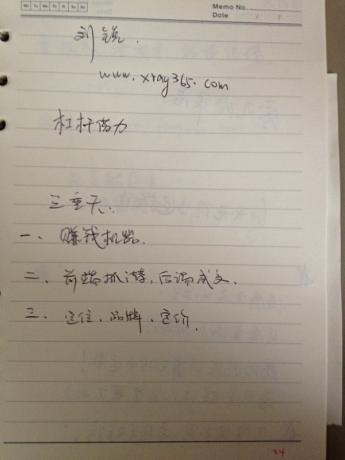 Memo No.
Date / /
刘锐.
www.xray365.com
杠杆借力
三重天:
一、赚钱机器.
二、前端抓潜,后端成交.
三、定位、品牌、定价.
24